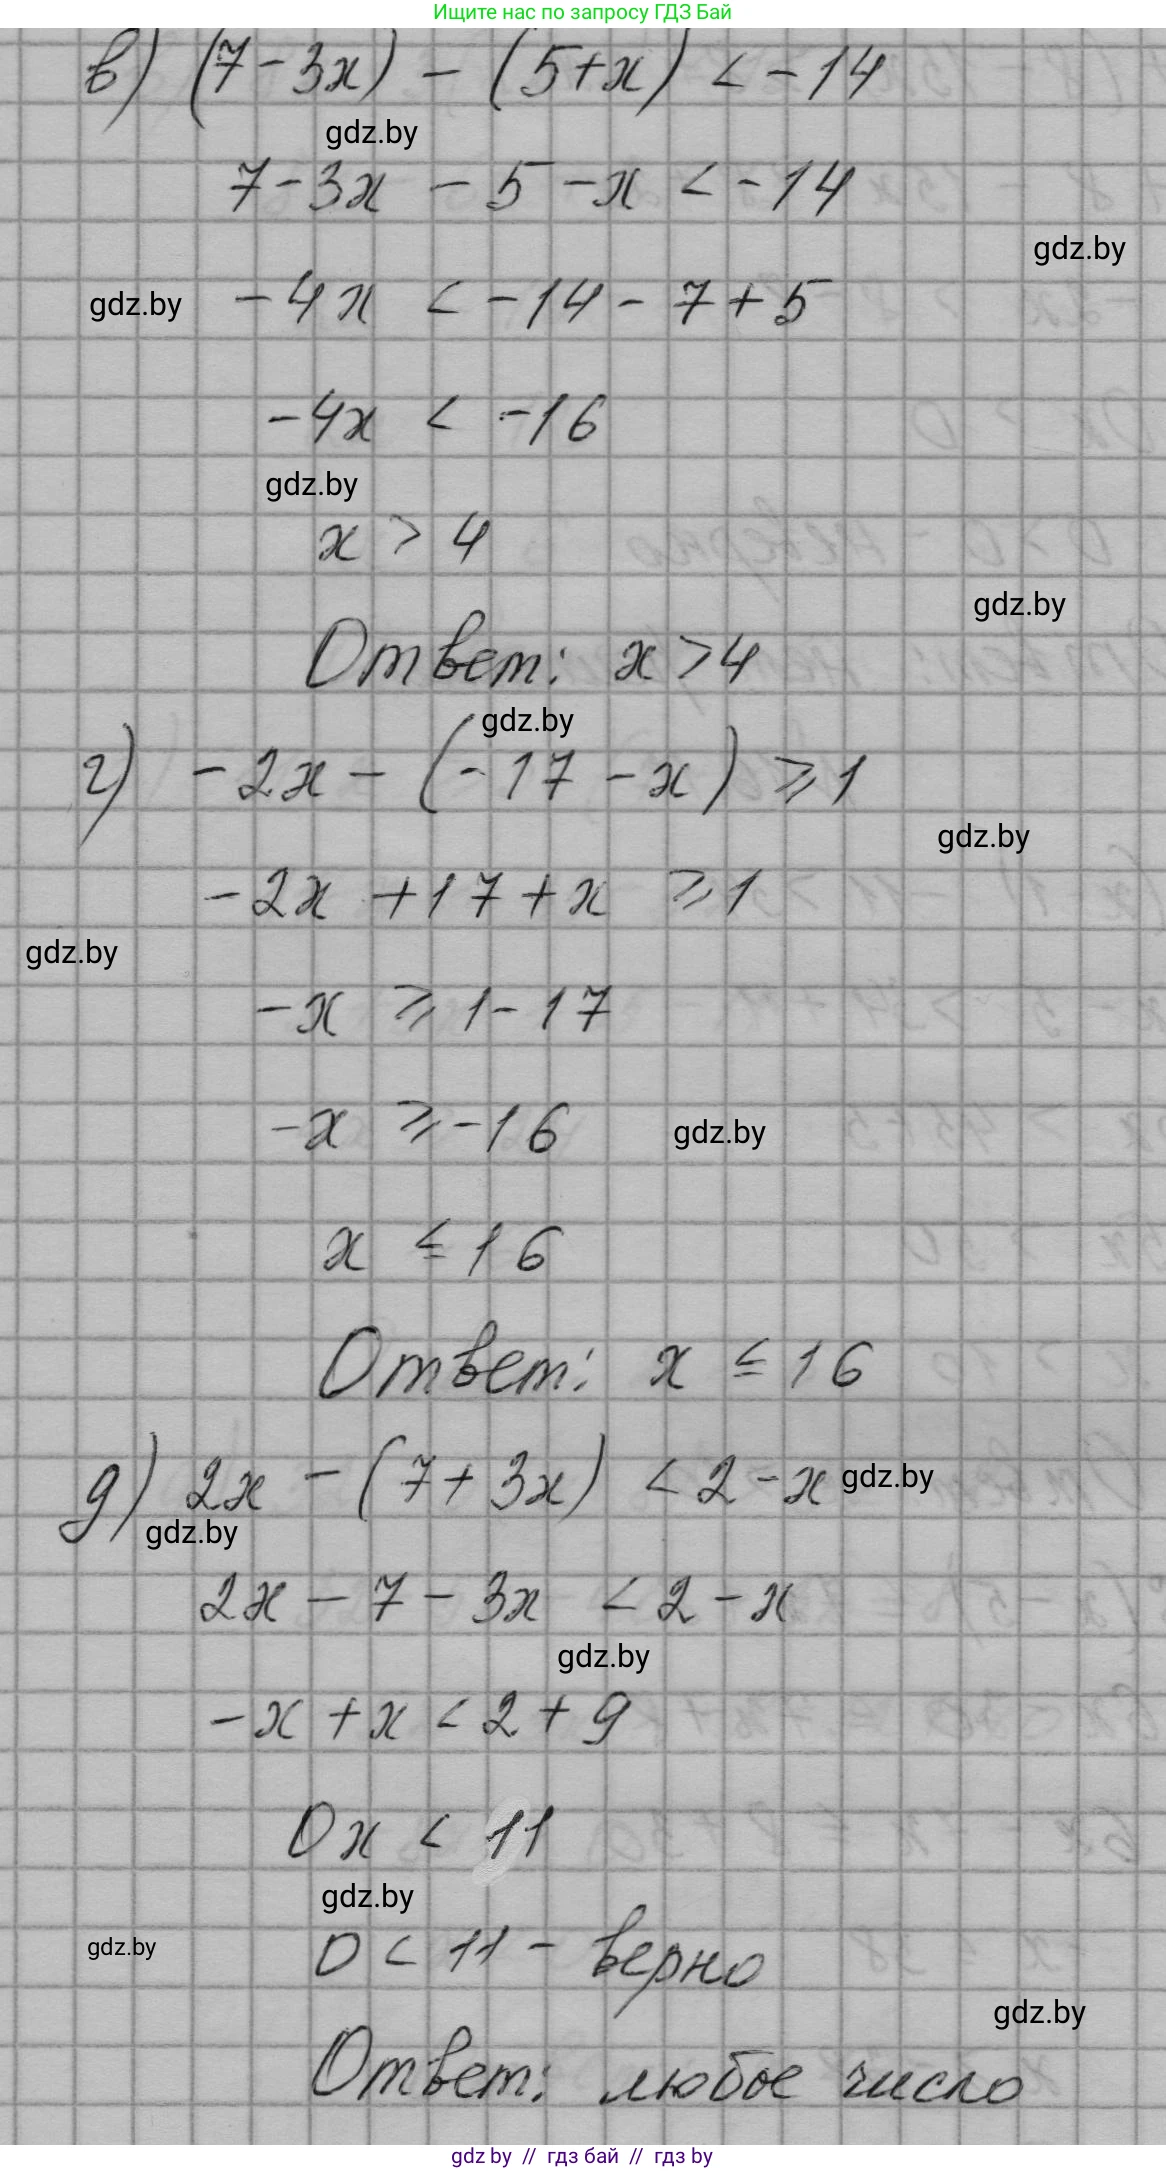 Ищите нас по запросу ГДЗ Бай
в) (7-3x) - (5+x) < -14
gdz.by
7-3x - 5 -x < -14
gdz.by
gdz.by -4x < -14 - 7 + 5
-4x < -16
gdz.by
x > 4
gdz.by
Ответ: x > 4
gdz.by
г) -2x - (-17 -x) ⩾ 1
gdz.by
-2x +17 + x ⩾ 1
gdz.by
-x ⩾ 1-17
-x ⩾ -16 gdz.by
x ≤ 16
Ответ: x ≤ 16
д) 2x - (7+3x) < 2 -x gdz.by
gdz.by
2x - 7 - 3x < 2 - x
gdz.by
-x + x < 2 + 9
0x < 11
gdz.by
gdz.by 0 < 11 - верно
gdz.by
Ответ: любое число
gdz.by // гдз бай // гдз by